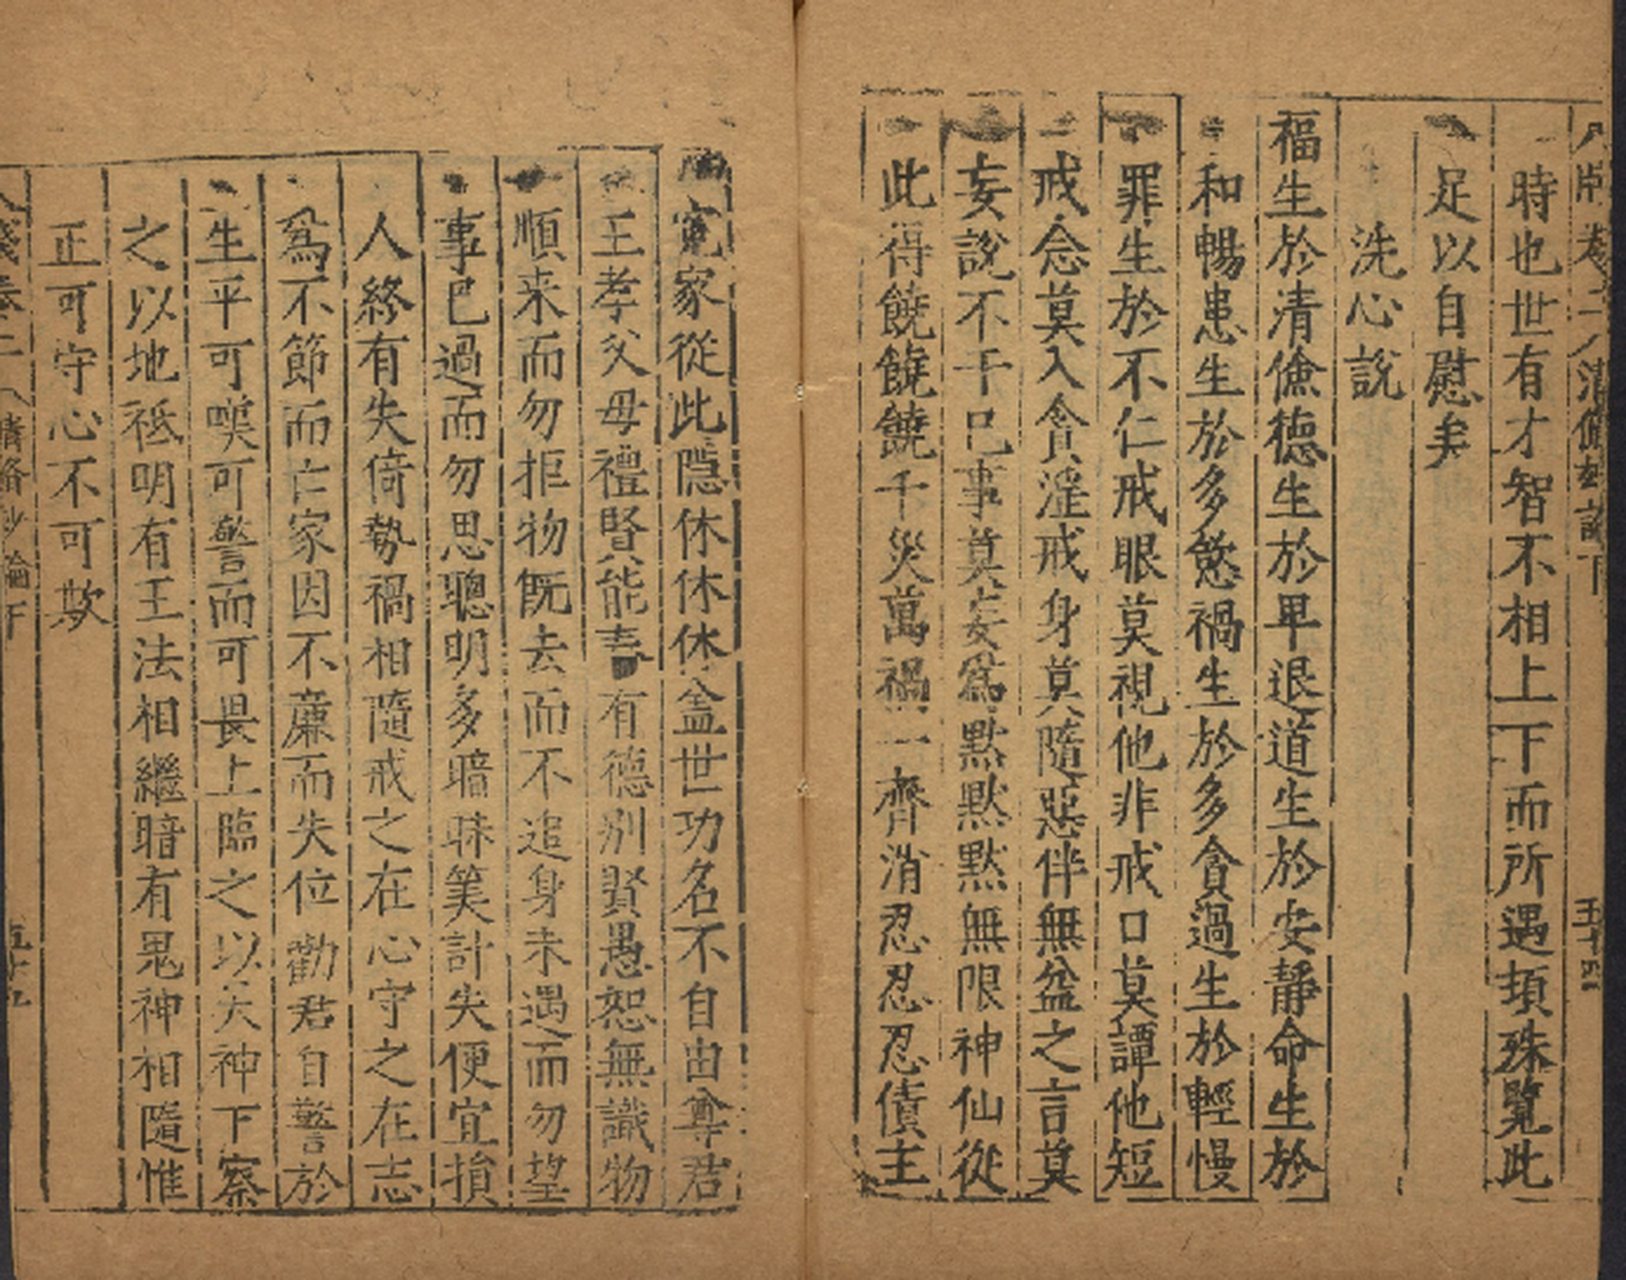 時也世有才智不相上下而所遇頓殊覧此
足以自慰矣
洗心說
福生於清儉德生於早退道生於安靜命生於
和暢患生於多慾禍生於多貪過生於輕慢
罪生於不仁戒眼莫視他非戒口莫譚他短
戒念莫入貪淫戒身莫隨惡伴無益之言莫
妄說不干已事莫妄為默默默無限神仙從
此得饒饒饒千災萬禍一齊消忍忍忍債主
寃家從此隱休休休盖世功名不自由尊君
王孝父母禮賢能奉有德别賢愚恕無識物
順来而勿拒物旣去而不追身未遇而勿望
事巳過而勿思聰明多暗昧筭計失便宜損
人終有失倚勢禍相隨戒之在心守之在志
爲不節而亡家因不廉而失位勸君自警於
生平可嘆可警而可畏上臨之以天神下察
之以地祗明有王法相繼暗有鬼神相隨惟
正可守心不可欺